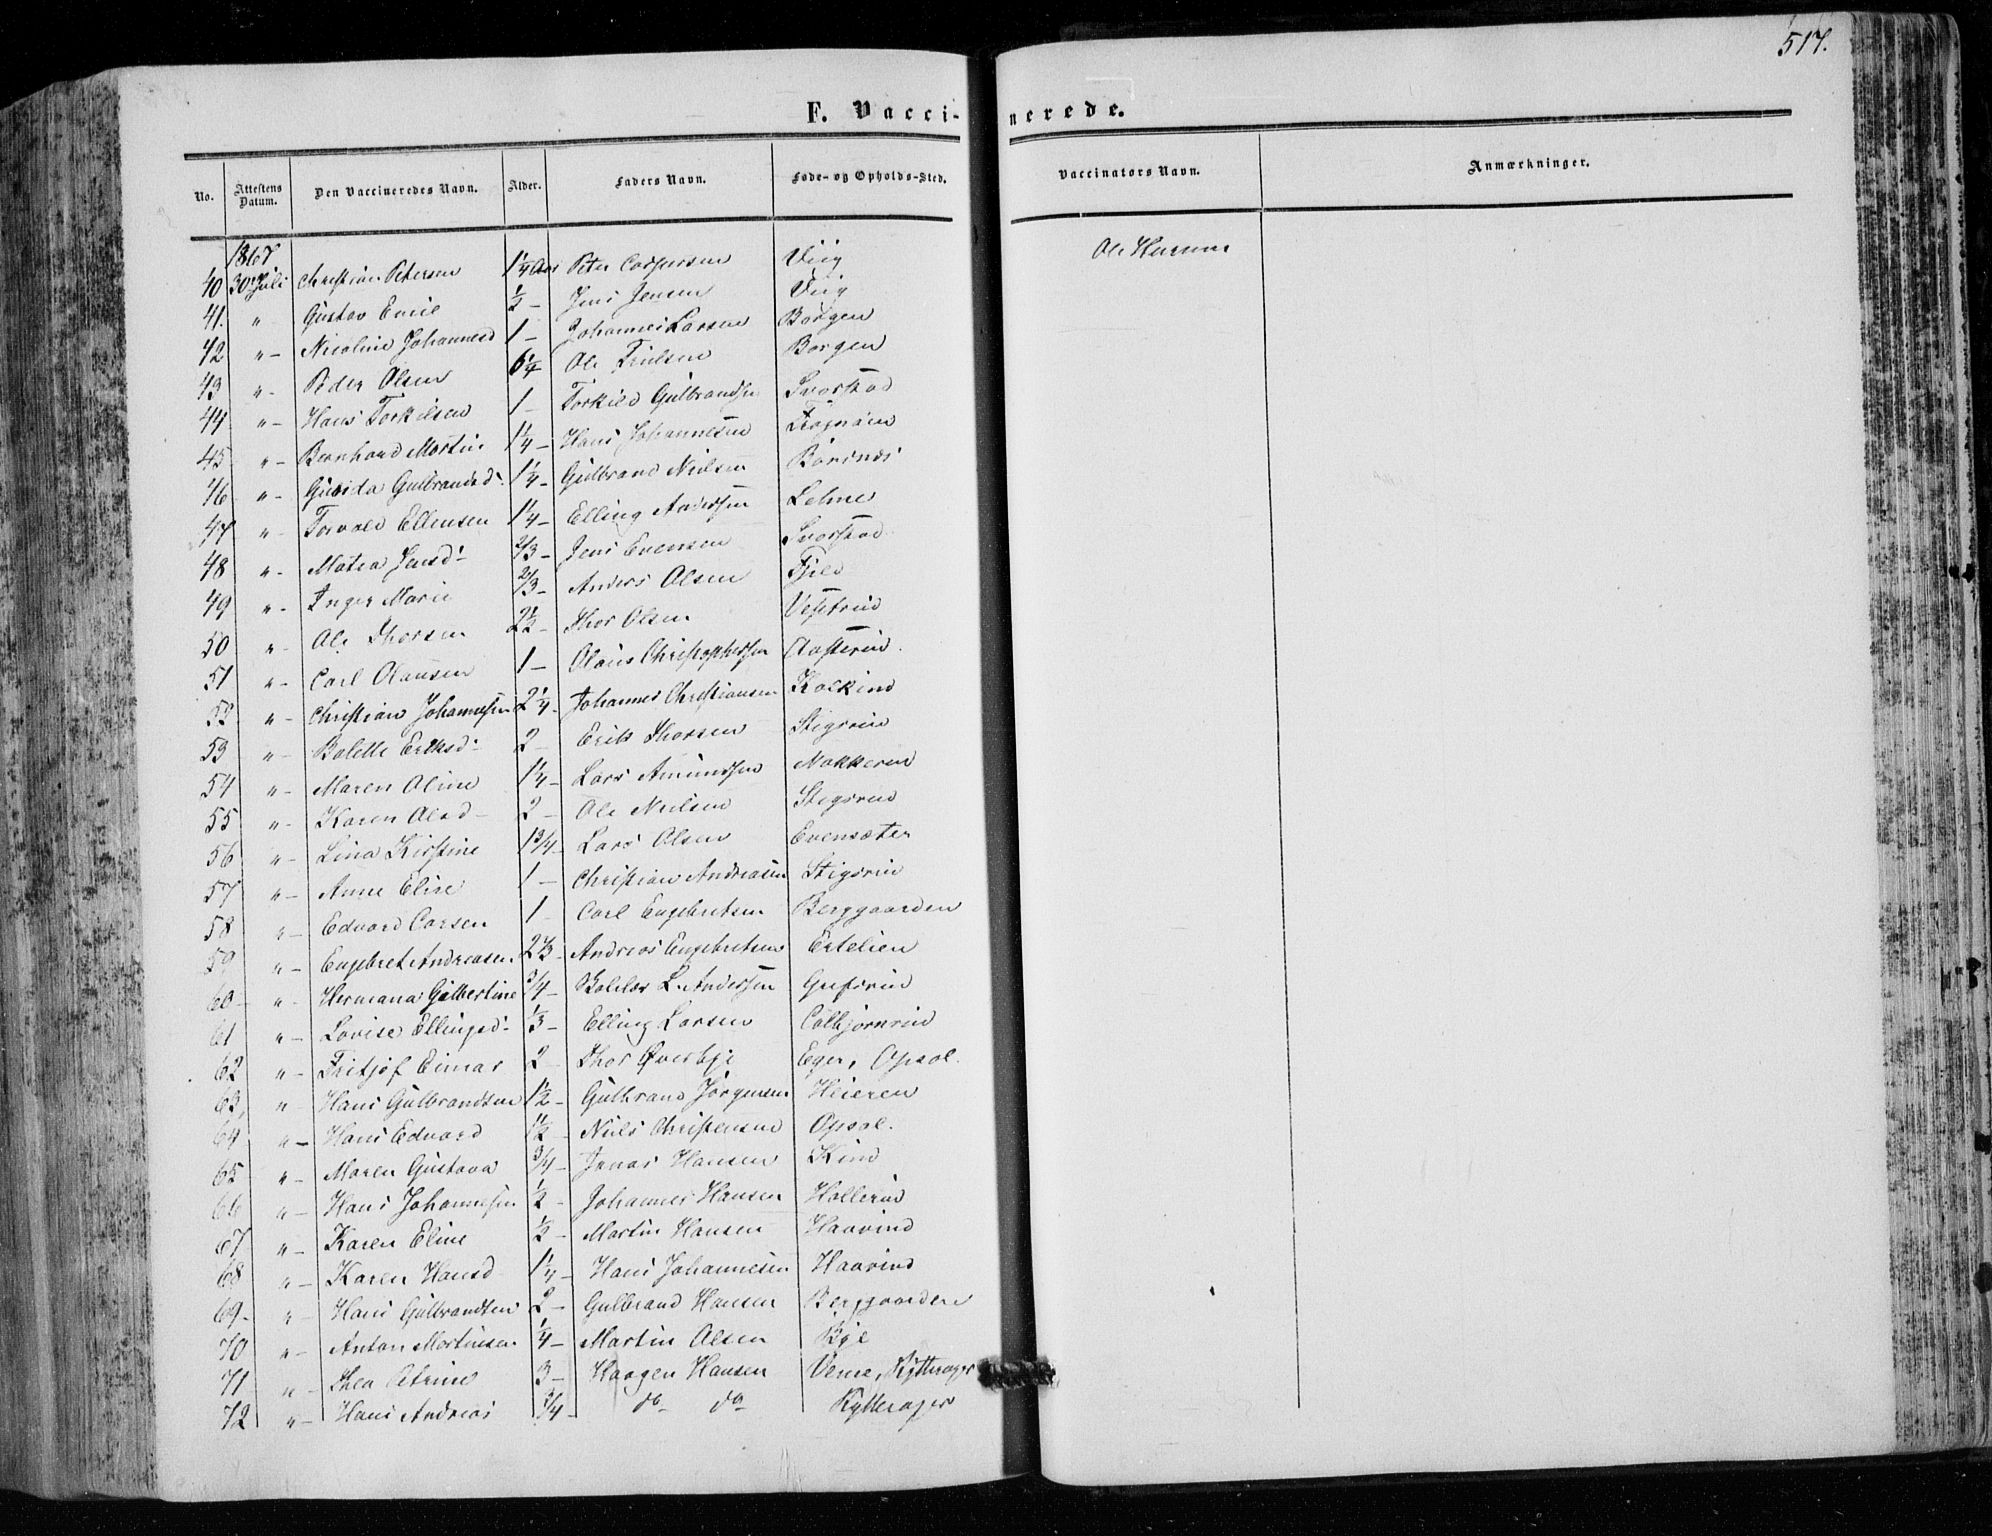 517.
F. Vaccinerede.
No. Attestens Datum. Den Vaccineredes Navn. Alder. Faders Navn. Føde- og Opholds-Sted. Vaccinators Navn. Anmærkninger.
1867
40 30 Juli Christian Petersen 1¼ Aar Peter Caspersen Viig Ole
41. " Gustav Emil ½ - Jens Jensen Viig
42 " - Nicoline Johannesd 1 - Johannes Larsen Borgen
43 " - Peder Olsen 6¼ Ole Borgen
44 " - Hans Torkilsen 1 - Torkild Gulbrandsen Svarstad
45 " - Bernhard Martin 1¼ - Hans Johannesen
46 " - Gulbrandsd: 1¼ - Gulbrand Nielsen Børsnæs
47 " - Torvald Ellensen 1¼ - Elling Andersen Lehne
48 " - Matea Jensd: 2/3 - Jens Evensen Svarstad
49 " - Inger Marie 2/3 - Anders Olsen Fjeld
50 " - Ole Thorsen 2½ - Thor Olsen Vestrud
51 " - Carl Olausen 1 - Olaus Christophersen
52 " - Christian Johannesen 2¼ - Johannes Christiansen
53 " - Bolette Eriksd: 2 - Erik Thorsen Stigsrud
54 " - Maren Oline 1¼ - Lars Amundsen Nakkerud
55 " - Karen Olsd 2 - Ole Nielsen Stigsrud
56 " - Lina Kirstine 1¾ - Lars Olsen Evensæter
57 " - Anne Elise 1 - Christian Andreasen Stigsrud
58 " - Edvard Carsen 1 - Carl Engebretsen Berggaarden
59 " - Engebret Andreasen 2 2/3 - Andreas Engebretsen Ertelien
60 - " - Hermana Gilbertine ¾ - L. Andersen Gusrud
61 " - Lovise Ellingsd: 1/3 - Elling Larsen Colbjørnrud
62 " - Fritjof Eimar 2 Thor Øverbye Eger, Opsal.
63, " - Hans Gulbrandsen 1½ - Gulbrand Jørgensen Heieren
64 " - Hans Edvard 1½ - Niels Christensen Opsal.
65 " - Maren Gustava ¾ - Jonas Hansen Kind
66 " - Hans Johannesen ½ - Johannes Hansen Hallerud
67 " - Karen Eline ½ - Martin Hansen Haavind
68 " - Karen Hansd 1¼ - Hans Johannesen Haavind
69 - " - Hans Gulbrandsen 2 - Gulbrand Hansen Berggaarden
70 " - Anton Martinsen ¼ - Martin Olsen Bye
71 " - Thea Petrine 3 - Haagen Hansen Veme, Rytterager
72 " - Hans Andreas ¾ - do do Rytterager